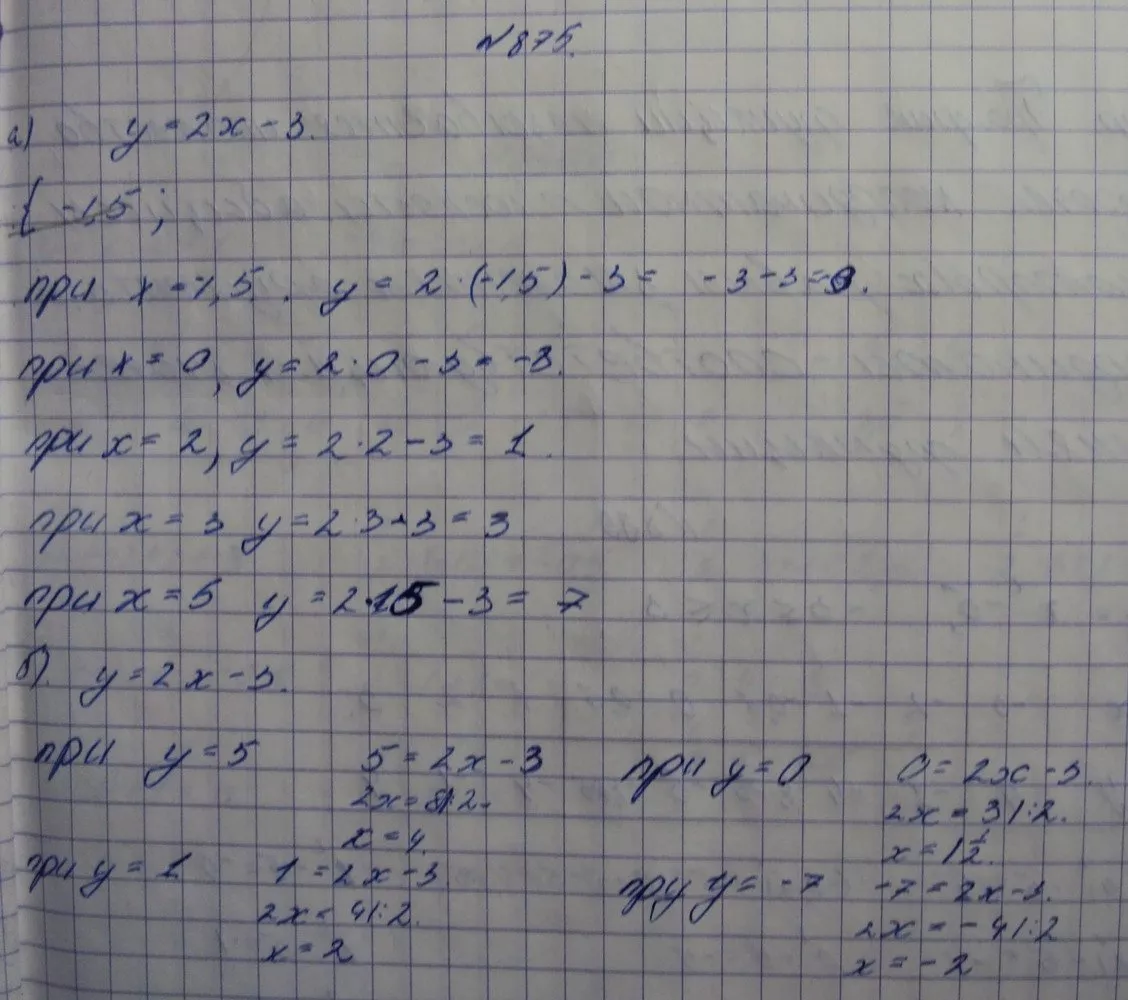 №875.
а) y = 2x - 3.
{ -1,5 ;
при x = -1,5 . y = 2 · (-1,5) - 3 = -3 - 3 = -6.
при x = 0, y = 2 · 0 - 3 = -3.
при x = 2, y = 2 · 2 - 3 = 1.
при x = 3 y = 2 · 3 - 3 = 3
при x = 5 y = 2 · 5 - 3 = 7
б). y = 2x - 3.
при y = 5 5 = 2x - 3 при y = 0 0 = 2x - 3.
2x = 8|:2. 2x = 3|:2.
x = 4. x = 1½.
при y = 1 1 = 2x - 3 при y = -7 -7 = 2x - 3.
2x = 4|:2. 2x = -4|:2
x = 2 x = -2